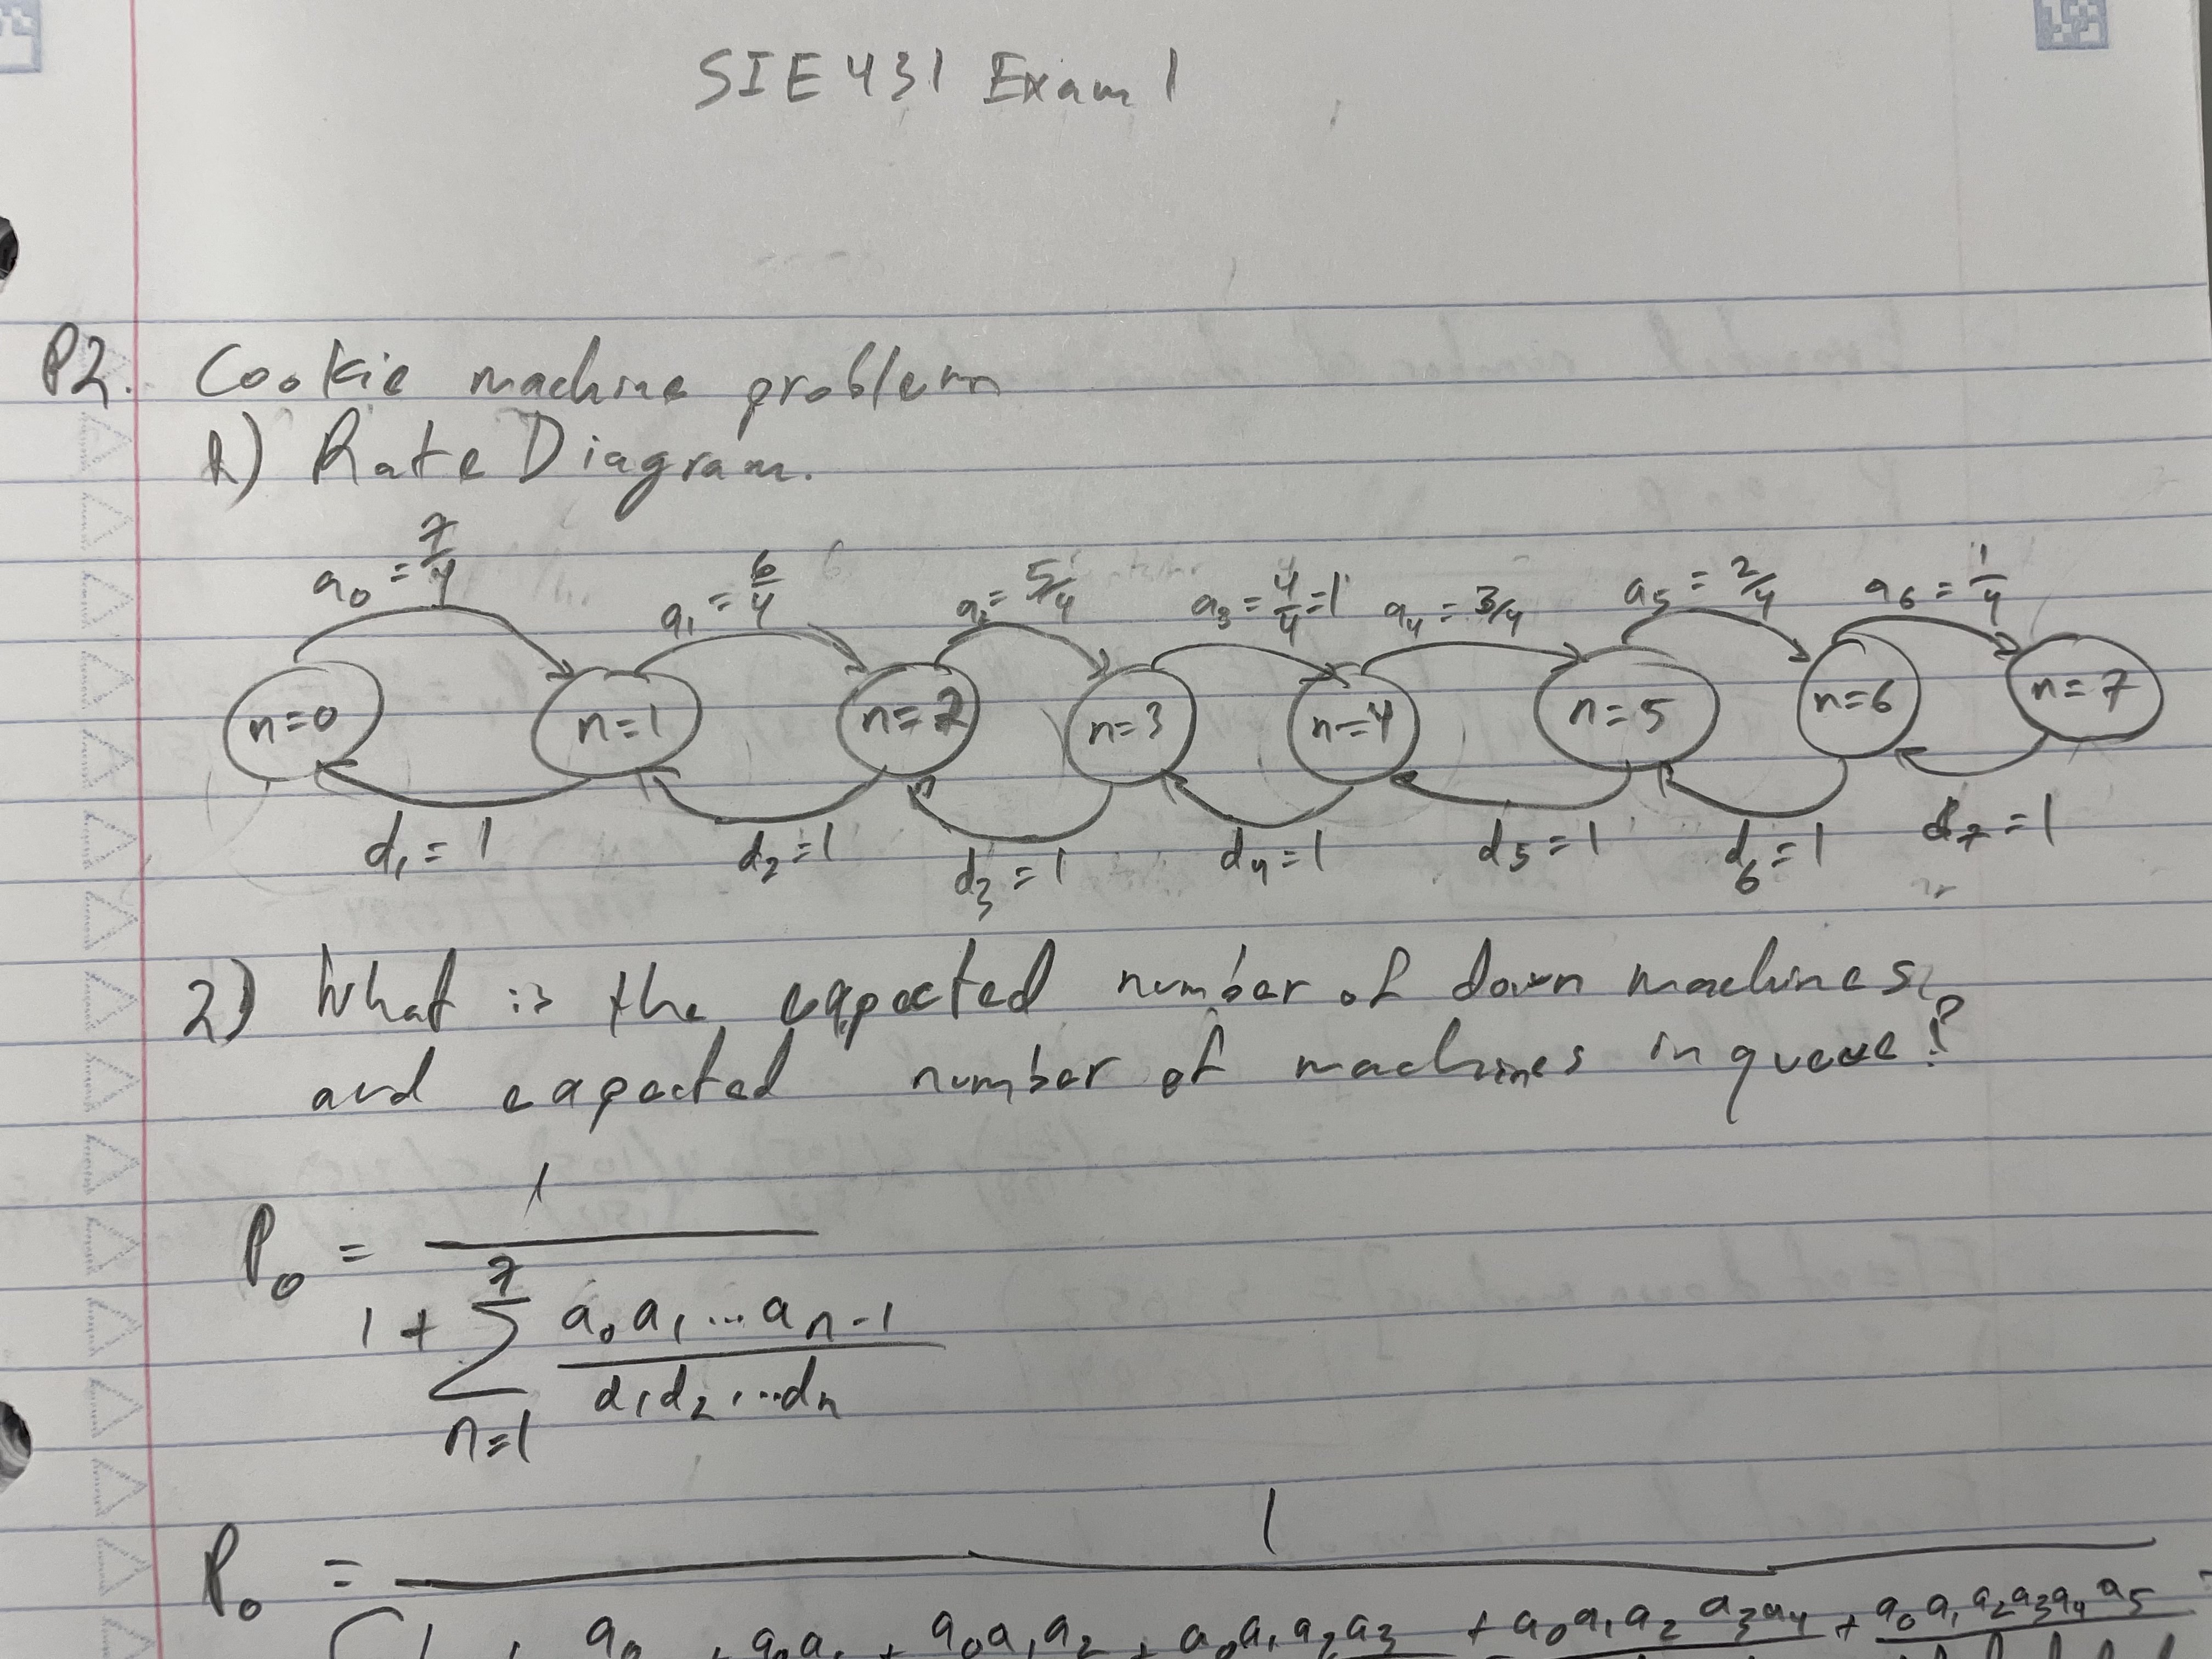 SIE 431 Exam 1
P2. Cookie machine problem
1) Rate Diagram.
a₀ = 7/4 a₁ = 6/4 a₂ = 5/4 a₃ = 4/4 = 1 a₄ = 3/4 a₅ = 2/4 a₆ = 1/4
n=0 n=1 n=2 n=3 n=4 n=5 n=6 n=7
d₁ = 1 d₂ = 1 d₃ = 1 d₄ = 1 d₅ = 1 d₆ = 1 d₇ = 1
2) What is the expected number of down machines
and expected number of machines in queue?
1
P₀ =
7
1 + Σ a₀a₁...aₙ₋₁
d₁d₂...dₙ
n=1
1
P₀ =
a₀a₁a₂ + a₀a₁a₂a₃ + a₀a₁a₂a₃a₄ + a₀a₁a₂a₃a₄a₅